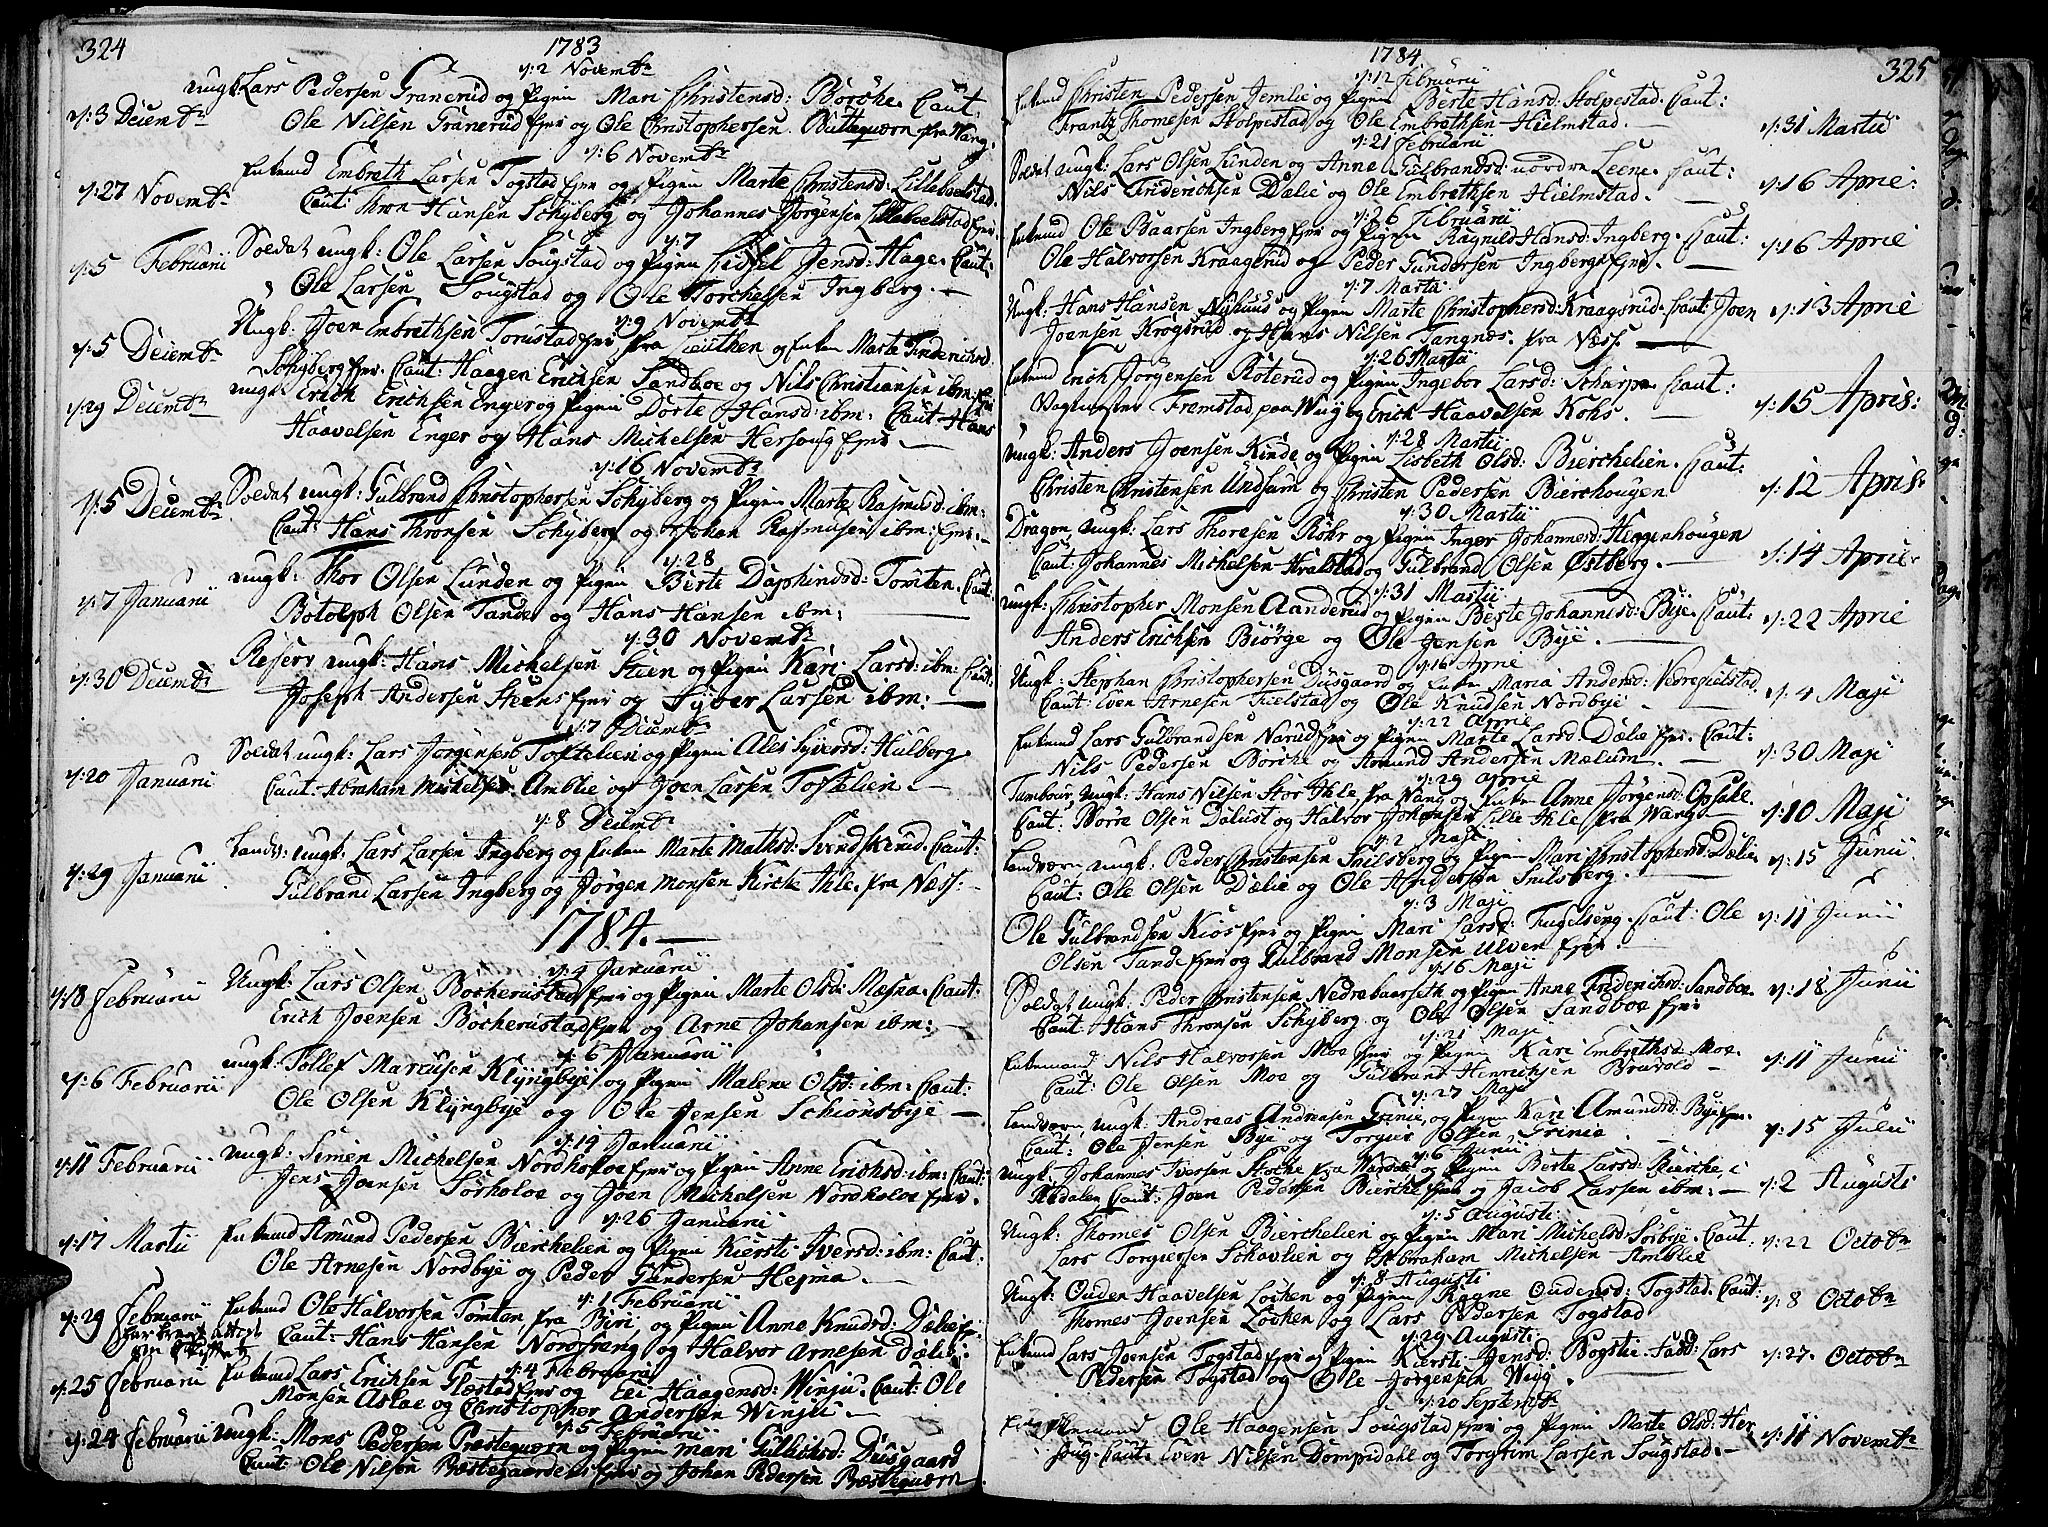 324
1783
d: 2 Novembr
d: 3 Decembr
ungk: Lars Pedersen Granerud og Pigen Mari Christensd: Börche. Caut
Ole Nilsen Granerud Ejer og Ole Christophersen Buttequærn fra Wang.
d: 6 Novembr
d: 27 Novembr
Enkemd Embreth Larsen Togstad Ejer og Pigen Marte Christensd: Lillebaelstad.
Caut: Thron Hansen Schyberg og Johannes Jörgensen Lillebaelstad Ejer.
d: 7
d: 5 Februarii
Soldat ungk: Ole Larsen Sougstad og Pigen Eidsel Jensd: Hage. Caut:
Ole Larsen Sougstad og Ole Torchelsen Ingberg.
d: 9 Novembr
d: 5 Decembr
Ungk: Joen Embrethsen Torustad fra Löuthen og Enken Marte Friderichsd:
Schyberg Ejer. Caut: Haagen Erichsen Sandboe og Nils Christiansen ibm:
d: 29 Decembr
ungk: Erich Erichsen Enger og Pigen Dorte Hansd: ibm: Caut: Hans
Haavelsen Enger og Hans Michelsen Hersoug Ejer.
d: 16 Novembr
d: 5 Decembr
Soldat ungk: Gulbrand Christophersen Schyberg og Pigen Marte Rasmusd: ibm:
Caut: Hans Thronsen Schyberg og Johan Rasmusen ibm: Ejer.
d: 28
d: 7 Januarii
ungk: Thor Olsen Lunden og Pigen Berte Daphindsd: Tomten. Caut:
Botolph Olsen Tande og Hans Hansen ibm:
d: 30 Novembr
d: 30 Decembr
Reserv ungk: Hans Michelsen Steen og Pigen Kari Larsd: ibm: Caut:
Joseph Andersen Steens Ejer og Syver Larsen ibm:
d: 7 Decembr
d: 20 Januarii
Soldat ungk: Lars Jörgensen Toftelien og Pigen Ales Syversd: Hulberg.
Caut: Abraham Michelsen Amblie og Joen Larsen Toftelien.
d: 8 Decembr
d: 29 Januarii
Landv: ungk: Lars Larsen Ingberg og Enken Marte Mathsd: Svendskerud. Caut:
Gulbrand Larsen Ingberg og Jörgen Monsen Kirche Ihle fra Næss:
1784.
d: 4 Januarii
d: 18 Februarii
Ungk: Lars Olsen Bocherustad Ejer og Pigen Marte Olsd: Mæsna. Caut:
Erich Joensen Bocherustad Ejer og Arne Johansen ibm:
d: 6 Januarii
d: 6 Februarii
ungk: Tollef Marcusen Klyngbye og Pigen Malene Olsd: ibm: Caut:
Ole Olsen Klyngbye og Ole Jensen Schiönsbye
d: 14 Januarii
d: 11 Februarii
ungk: Simen Michelsen Nordholoe Ejer og Pigen Anne Erichsd: ibm: Caut:
Jens Joensen Sörholoe og Joen Michelsen Nordholoe Ejer.
d: 26 Januarii
d: 17 Martii
Enkemd Amund Pedersen Bierchelien og Pigen Kiersti Iversd: ibm: Caut:
Ole Arnesen Nordbye og Peder Gundersen Hejma.
d: 1 Februarii
d: 29 Februarii
Enkemd Ole Halvorsen Tömten fra Biri og Pigen Anne Knudsd: Dælie
Caut: Hans Hansen Nordseng og Halvor Arnesen Dælie
d: 4 Februarii
d: 25 Februarii
Enkemd Lars Erichsen Glæstad Ejer og Eli Haagensd: Winju. Caut: Ole
Monsen Askoe og Christopher Andersen Winju.
d: 5 Februarii
d: 24 Februarii
ungk: Mons Pedersen Præstequærn og Pigen Mari Gulbrsd: Dusgaard
Caut: Ole Nilsen Præstegaardens Ejer og Johan Pedersen Præstequærn
325
1784
d: 12 Februarii
Enkemd Christen Pedersen Jemlie og Pigen Berte Hansd: Stolpestad. Caut:
Frantz Thomesen Stolpestad og Ole Embrethsen Hielmstad.
d: 31 Martii
d: 21 Februarii
Soldat ungk: Lars Olsen Lunden og Anne Gulbrandsd: nordre Leene. Caut:
Nils Friderichsen Dælie og Ole Embrethsen Hielmstad.
d: 16 April:
d: 26 Februarii
Enkemd Ole Baarsen Ingberg Ejer og Pigen Ragnild Hansd: Ingberg. Caut:
Ole Halvorsen Kraagerud og Peder Gundersen Ingbergs Ejer.
d: 16 April
d: 7 Martii
Ungk: Hans Hansen Nyhuus og Pigen Marte Christophersd: Kraagsrud. Caut: Joen
Joensen Krogsrud og Hans Nilsen Tangnæs. fra Næss.
d: 13 April
d: 26 Martii
Enkemd Erich Jörgensen Röterud og Pigen Ingebor Larsd: Scharpe. Caut:
Vagtmester Fremstad paa Wiig og Erich Haavelsen Kohs.
d: 15 April:
d: 28 Martii
ungk: Anders Joensen Kinde og Pigen Lisbeth Olsd: Bierchelien. Caut:
Christen Christensen Undsum og Christen Pedersen Bierchougen
d: 12 April:
d: 30 Martii
Dragon, ungk: Lars Thoresen Röhr og Pigen Inger Johannesd: Heggenhougen
Caut: Johannes Michelsen Hvalstad og Gulbrand Olsen Østberg.
d: 14 April:
d: 31 Martii
ungk: Christopher Monsen Aanderud og Pigen Berte Johannisd: Bye. Caut:
Anders Erichsen Biörge og Ole Jensen Bye.
d: 22 April
d: 16 April
Ungk: Stephan Christophersen Dusgaard og Enken Maria Andersd: Nedrefielstad.
Caut: Even Arnesen Fielstad og Ole Knudsen Nordbye
d: 4 Maji
d: 22 April
Enkemd Lars Gulbrandsen Narud Ejer og Pigen Marte Larsd: Dælie Ejer. Caut:
Nils Pedersen Börche og Amund Andersen Mælum.
d: 30 Maji
d: 29 April
Tambour, ungk: Hans Nilsen Stor Ihle fra Wang og Enken Anne Jörgensd: Opsale.
Caut: Börre Olsen Dalust og Halvor Johansen Lille Ihle fra Wang.
d: 10 Maji
d: 2 Maji
Landværn, ungk: Peder Christensen Snilsberg og Pigen Mari Christophersd: Dælie
Caut: Ole Olsen Dælie og Ole Andersen Snilsberg.
d: 15 Junii
d: 3 Maji
Ole Gulbrandsen Kios Ejer og Pigen Mari Larsd: Fugelseng. Caut: Ole
Olsen Tande Ejer og Gulbrand Monsen Ulven Ejer.
d: 11 Junii
d: 16 Maji
Soldat ungk: Peder Christensen Nedrebaarseth og Pigen Anne Friderichsd: Sandboe.
Caut: Hans Thronsen Schyberg og Ole Olsen Sandboe Ejer
d: 18 Junii
d: 21 Maji
Enkemand Nils Halvorsen Moe Ejer og Pigen Kari Embrethsd: Moe.
Caut: Ole Olsen Moe og Gulbrand Henrichsen Bruvold
d: 11 Junii
d: 27 Maji
Landværn, ungk: Andreas Andreasen Grinie, og Pigen Kari Amundsd: Bye Ejer.
Caut: Ole Jensen Bye og Torger Olsen Grinie.
d: 15 Julii
d: 6 Junii
ungk: Johannes Iversen Stoche fra Wardal og Pigen Berte Larsd: Bierche, i
Aadalen Caut: Joen Pedersen Bierche Ejer og Jacob Larsen ibm:
d: 2 Augusti
d: 5 Augusti
Ungk: Thomes Olsen Bierchelien og Pigen Mari Michelsd: Sörbye. Caut:
Lars Torgersen Schavlien og Abraham Michelsen Amblie
d: 22 Octobr
d: 8 Augusti
Ungk: Ouden Haavelsen Löchen og Pigen Ragne Oudensd: Togstad. Caut:
Thomes Joensen Löchen og Lars Pedersen Togstad
d: 8 Octobr
d: 29 Augusti
Enkemd Lars Joensen Togstad Ejer og Pigen Kiersti Jensd: Bogstie. Lars
Pedersen Togstad og Ole Jörgensen Wiig.
d: 27. Octobr
d: 20 Septembr
Ole Haagensen Sougstad Ejer og Pigen Marte Olsd: Her
soug. Caut: Even Nilsen Dompidahl og Torgrim Larsen Sougstad.
d: 11 Novembr